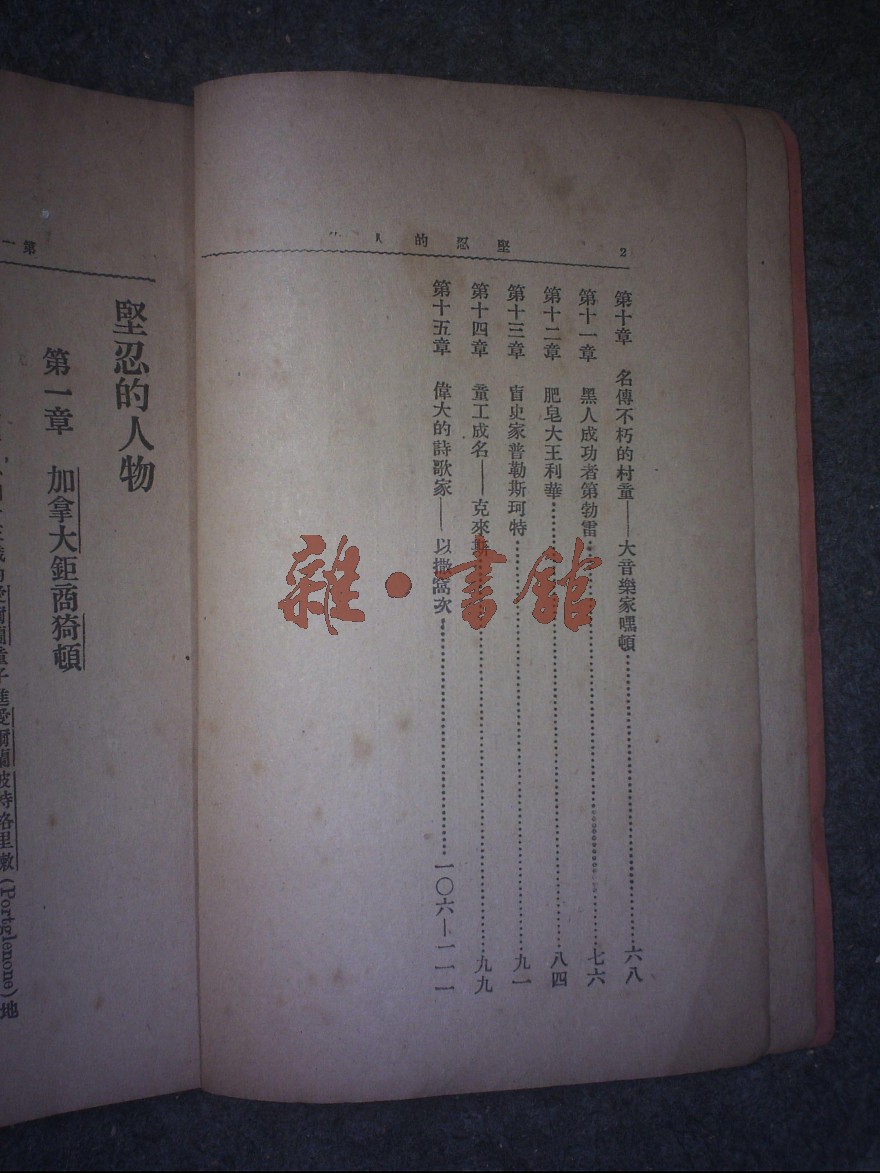 2 堅忍的人
第十章 名傳不朽的村童——大音樂家嘿頓……六八
第十一章 黑人成功者第勃雷……七六
第十二章 肥皂大王利華……八四
第十三章 盲史家普勒斯珂特……九一
第十四章 童工成名——克來斯……九九
第十五章 偉大的詩歌家——以撒窩次……一〇六—一一一
雜·書館
第一
堅忍的人物
第一章 加拿大鉅商猗頓
愛爾蘭童子 愛爾蘭波特格里 (Portglenone) 地